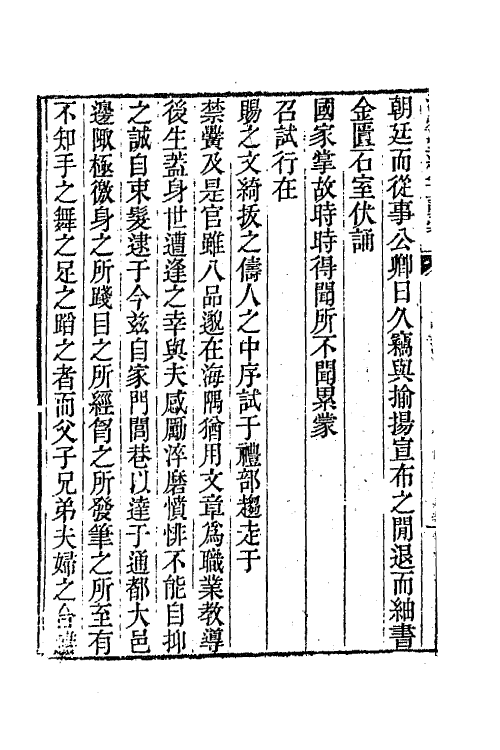 朝廷而從事公卿日久竊與揄揚宣布之閒退而紬書
金匱石室伏誦
國家掌故時時得聞所不聞累蒙
召試行在
賜之文綺拔之儔人之中序試于禮部趨走于
禁黌及是官雖八品邀在海隅猶用文章爲職業教導
後生蓋身世遭逢之幸與夫感勵淬磨憤悱不能自抑
之誠自束髮逮于今茲自家門閭巷以達于通都大邑
邊陬極徼身之所踐目之所經胷之所發筆之所至有
不知手之舞之足之蹈之者而父子兄弟夫婦之